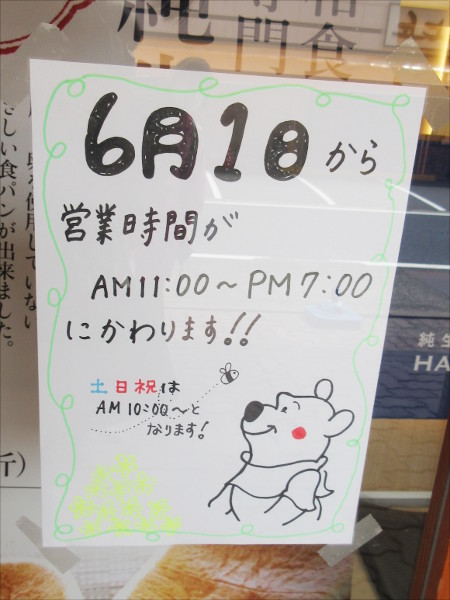 6月1日から
営業時間が
AM11:00～PM7:00
にかわります!!
土日祝は
AM10:00～と
なります!
使用していない
さしい食パンが出来ました。
専門
和食
純生
HA